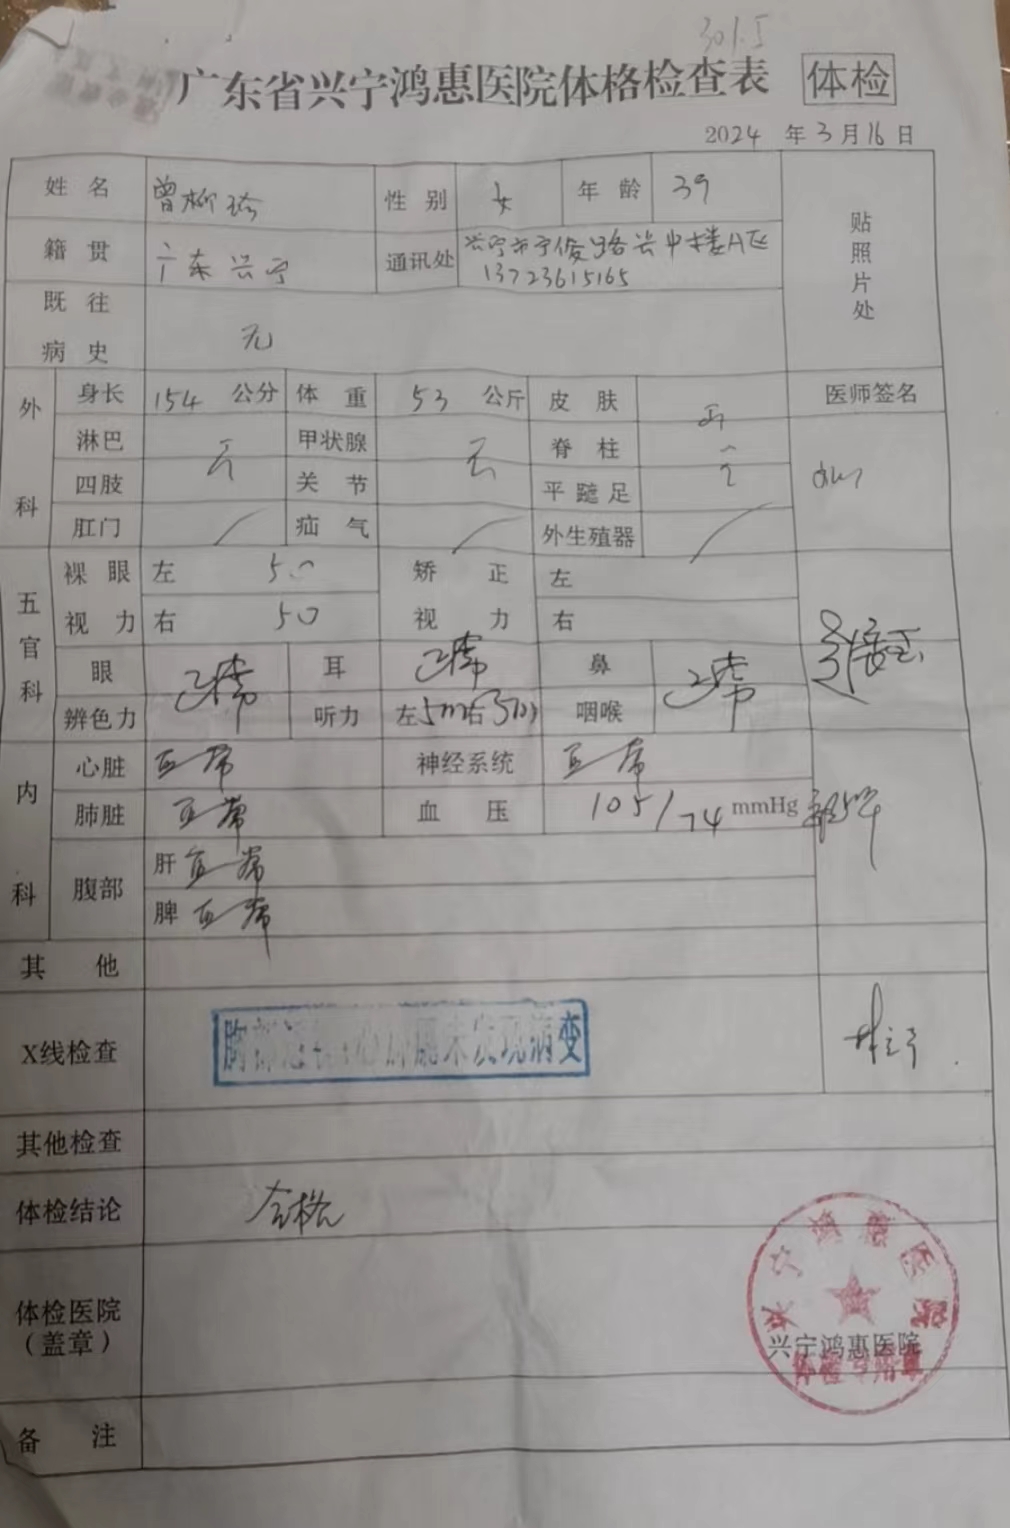 301.5
广东省兴宁鸿惠医院体格检查表 体检
2024 年 3 月 16 日
姓名 曾柳 性别 女 年龄 39 贴照片处
籍贯 广东兴宁 通讯处 兴宁市宁俊路兴中楼A区
13723615165
既往病史 无
外科 身长 154 公分 体重 53 公斤 皮肤 医师签名
淋巴 甲状腺 脊柱
四肢 无 关节 无 平蹠足
肛门 / 疝气 / 外生殖器 /
五官科 裸眼视力 左 50 矫正视力 左
右 50 右
眼 正常 耳 正常 鼻 正常
辨色力 听力 左5m右5m 咽喉
内科 心脏 正常 神经系统 正常
肺脏 正常 血压 105/74 mmHg
腹部 肝 正常
脾 正常
其他
X线检查 胸部透视:心肺膈未发现病变
其他检查
体检结论 合格
体检医院(盖章) 兴宁鸿惠医院
兴宁鸿惠医院
体检专用章
备注